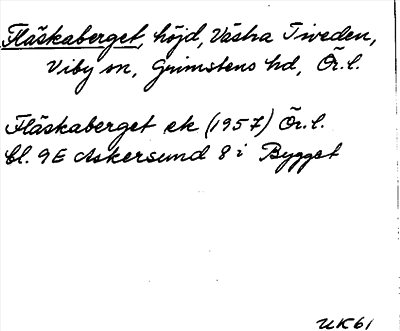 Fläskaberget, höjd, Västra Tiveden,
Viby sn, Grimstens hd, Ör.l.
Fläskaberget ek (1957) Ör.l.
bl. 9E Askersund 8 i Bygget
UK61